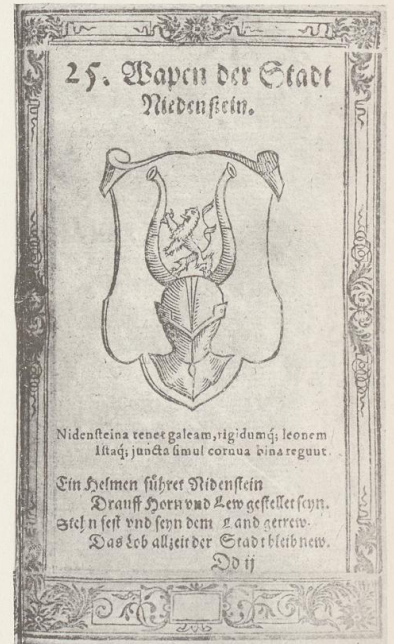 25. Wapen der Stadt
Niedenstein.
Nidensteina tenet galeam, rigidumq́; leonem
Istaq́; juncta simul cornua bina tegunt.
Ein Helmen führet Nidenstein
Drauff Horn vnd Lew gestellet seyn.
Stehn fest vnd seyn dem Land getrew.
Das Lob allzeit der Stadt bleib new.
Dd ij